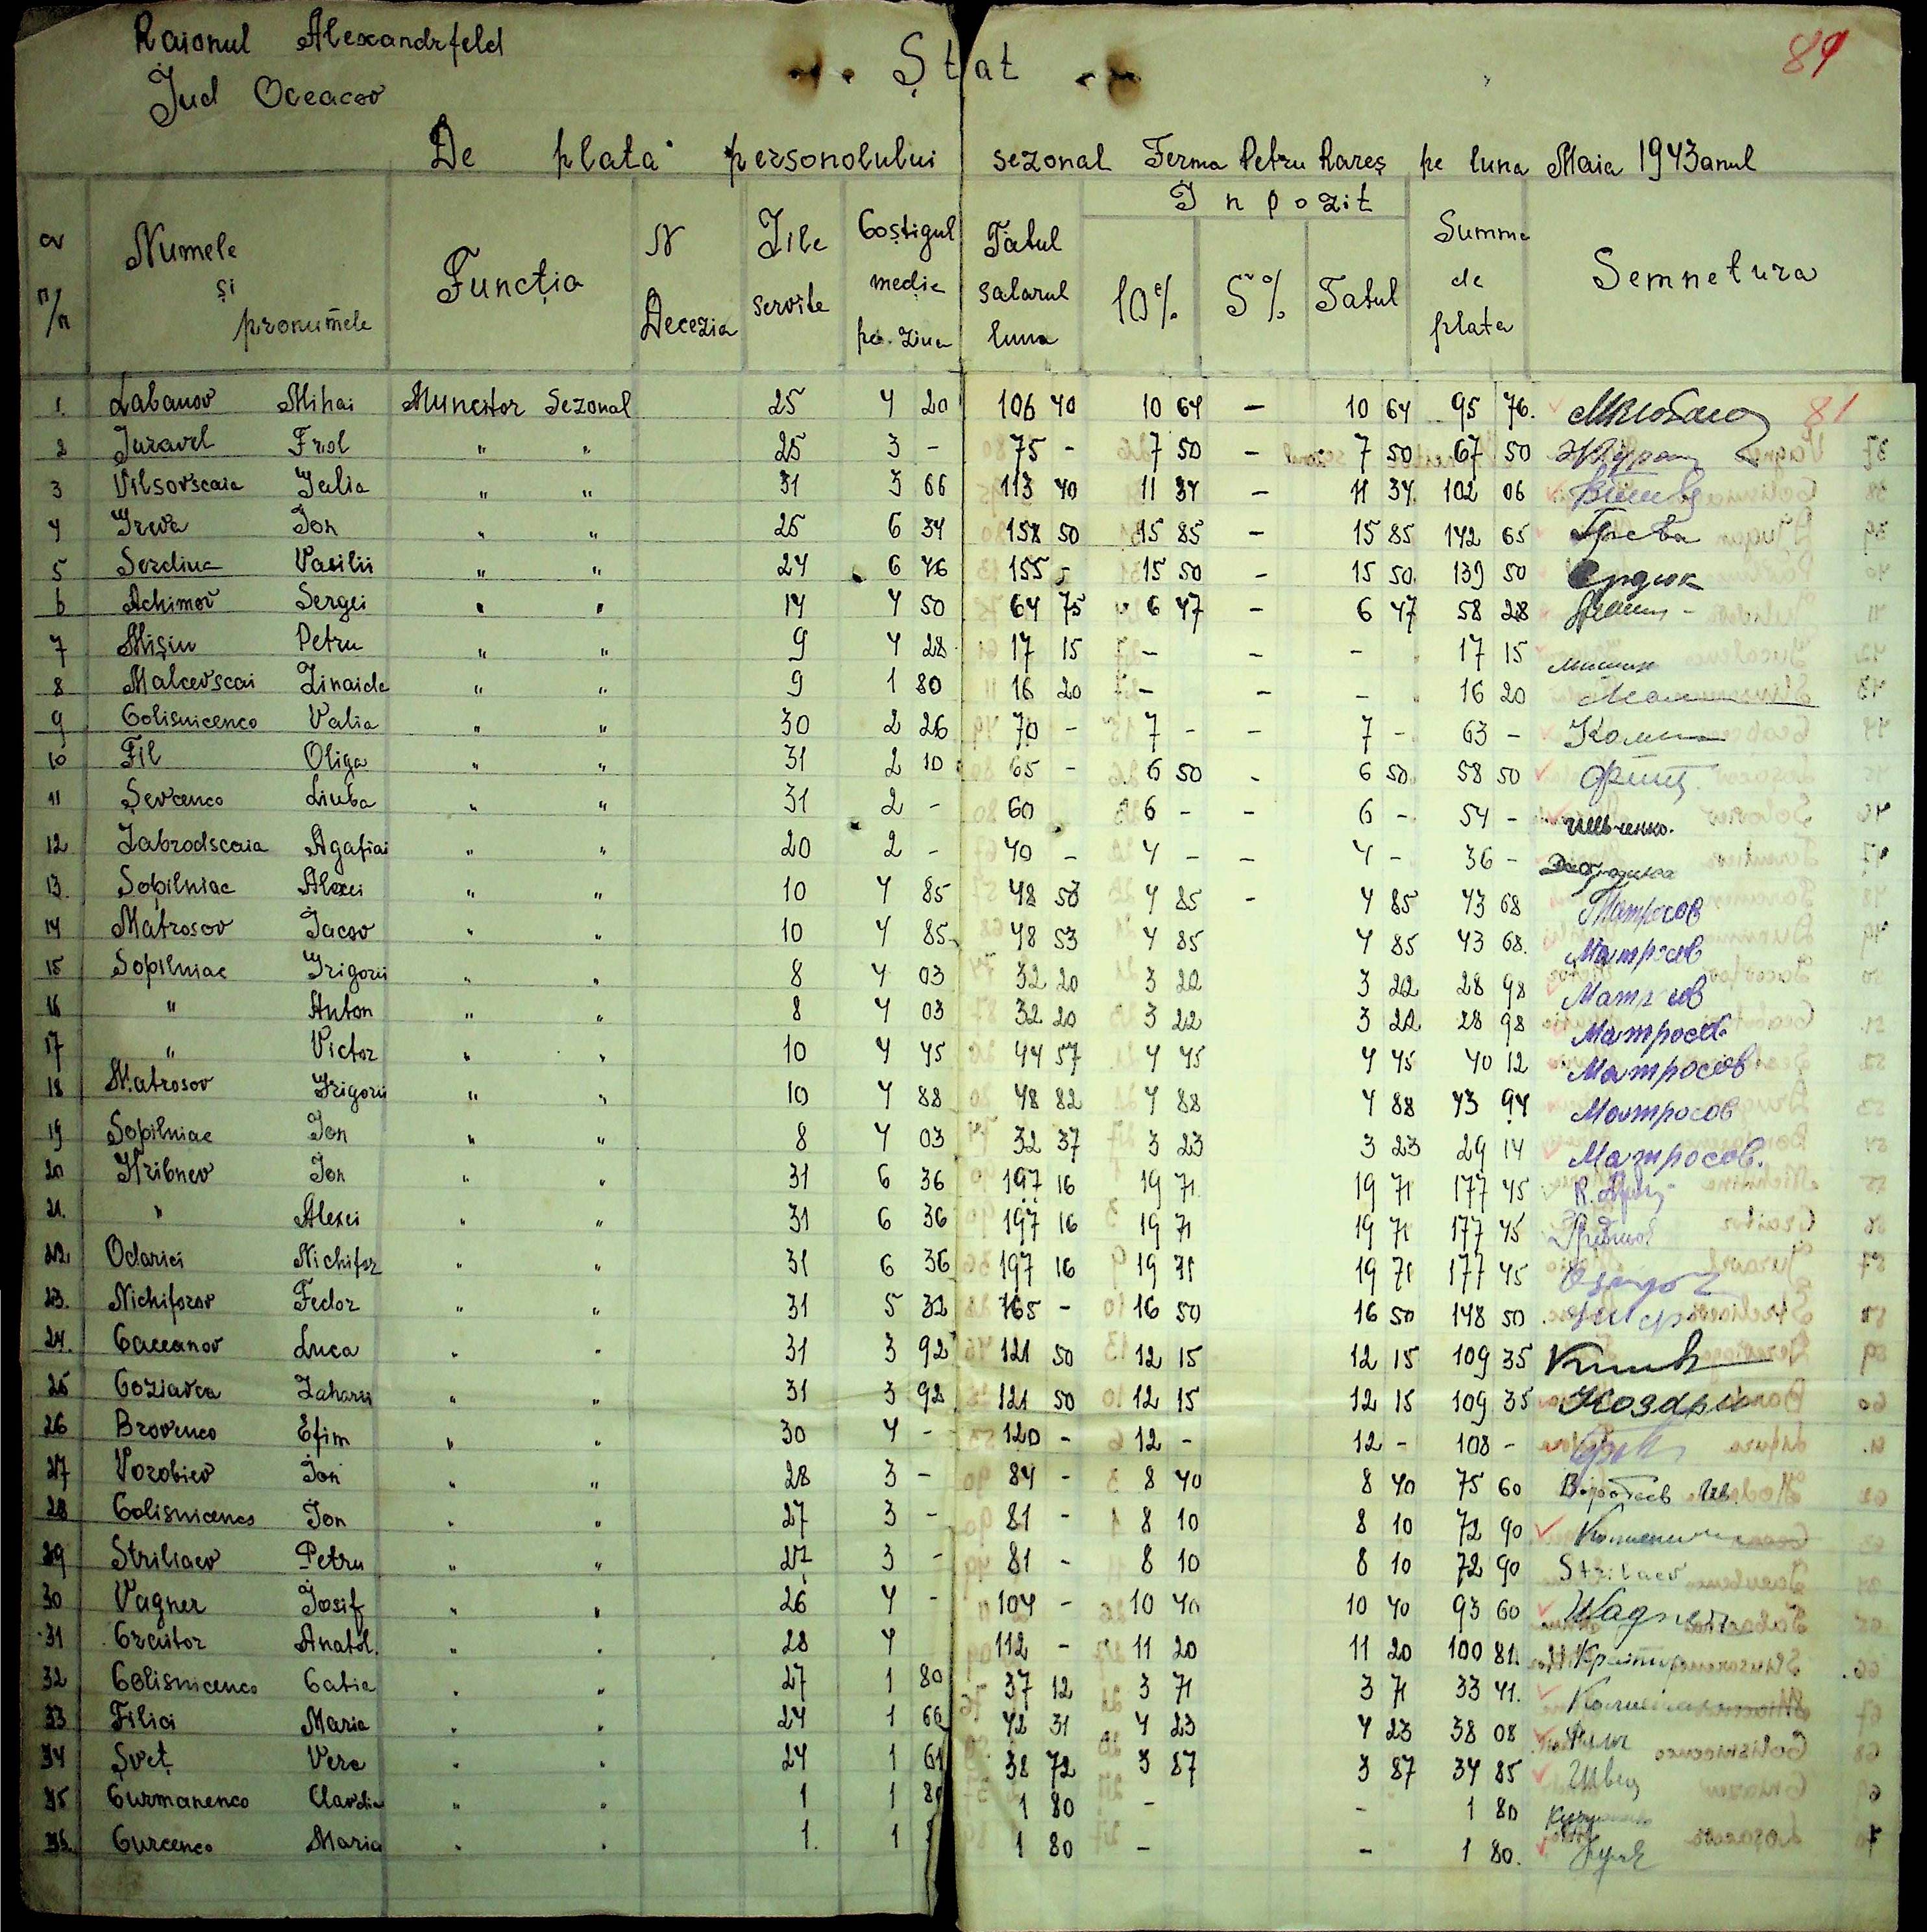 Raionul Alexandrfeld
Jud Oceacov
Ștat
89
De plata personolului sezonal Ferma Petru Rareș pe luna Maia 1943 anul
N n/n Numele și pronumele Funcția N Decezia Zile servite Coștigul medie pe. Ziua Tatul salarul luna Inpozit 10% 5% Tatul Summa de plata Semnetura
1. Labanov Mihai Muncitor Sezonal 25 4 20 106 40 10 64 - 10 64 95 76. 81
2 Juravel Frol " " 25 3 - 75 - 7 50 - 7 50 67 50
3 Vilsovscaia Iulia " " 31 3 66 113 40 11 34 - 11 34 102 06
4 Greva Ion " " 25 6 34 158 50 15 85 - 15 85 142 65 Грева
5 Serdiuc Vasilii " " 24 6 46 155 - 15 50 - 15 50 139 50 Сердюк
6 Achimov Sergei " " 14 4 50 64 75 6 47 - 6 47 58 28
7 Mișin Petru " " 9 4 28 17 15 - - - 17 15 мишин
8 Malcevscai Zinaida " " 9 1 80 16 20 - - - 16 20
9 Colisnicenco Valia " " 30 2 26 70 - 7 - - 7 - 63 -
10 Fil Oliga " " 31 2 10 65 - 6 50 - 6 50 58 50
11 Șevcenco Liuba " " 31 2 - 60 6 - - 6 - 54 - Шевченко.
12 Zabrodscaia Agafiai " " 20 2 - 40 - 4 - - 4 - 36 -
13. Sopilniac Alexei " " 10 4 85 48 53 4 85 - 4 85 43 68 Матросов
14 Matrosov Iacov " " 10 4 85 48 53 4 85 4 85 43 68. Матросов
15 Sopilniac Grigorii " " 8 4 03 32 20 3 22 3 22 28 98 Матросов
16 " Anton " " 8 4 03 32 20 3 22 3 22 28 98 Матросов
17 " Victor " " 10 4 45 44 57 4 45 4 45 40 12 Матросов
18 Matrosov Grigorii " " 10 4 88 48 82 4 88 4 88 43 94 Матросов
19 Sopilniac Ion " " 8 4 03 32 37 3 23 3 23 29 14 Матросов.
20 Hribnev Ion " " 31 6 36 197 16 19 71 19 71 177 45
21. " Alexei " " 31 6 36 197 16 19 71 19 71 177 45
22 Odarici Nichifor " " 31 6 36 197 16 19 71 19 71 177 45
23. Nichiforov Fedor " " 31 5 32 165 - 16 50 16 50 148 50
24. Caceanov Luca " " 31 3 92 121 50 12 15 12 15 109 35
25 Coziavca Zaharii " " 31 3 92 121 50 12 15 12 15 109 35
26 Brovenco Efim " " 30 4 - 120 - 12 - 12 - 108 -
27 Vorobiev Ion " " 28 3 - 84 - 8 40 8 40 75 60 Воробьев Ив.
28 Colisnicenco Ion " " 27 3 - 81 - 8 10 8 10 72 90
29 Striliaev Petru " " 27 3 - 81 - 8 10 8 10 72 90 Strilaev
30 Vagner Iosif " " 26 4 - 104 - 10 40 10 40 93 60 Wagner
31 Craitor Anatol. " " 28 4 112 - 11 20 11 20 100 81.
32 Colisnicenco Catia " " 27 1 80 37 12 3 71 3 71 33 41.
33 Filici Maria " " 24 1 66 42 31 4 23 4 23 38 08
34 Șveț Vera " " 24 1 61 38 72 3 87 3 87 34 85 Швец
35 Curmanenco Clavdia " " 1 1 80 1 80 - - 1 80
36. Curcenco Maria " " 1. 1 1 80 - - 1 80.